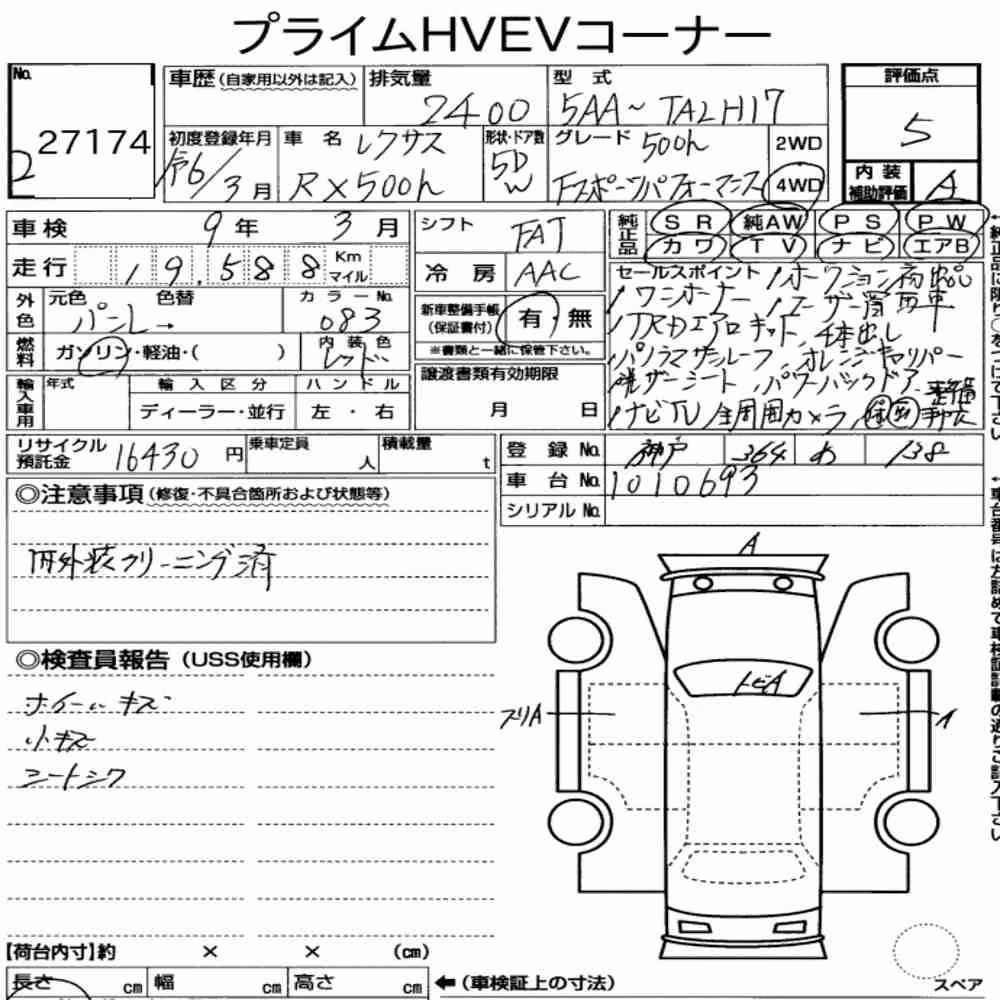 プライムHVEVコーナー
No. 27174
車歴 (自家用以外は記入)
排気量 2400
型式 5AA~TALH17
評価点 5
初度登録年月 令6/3月
車名 レクサス RX500h
形状・ドア数 5D W
グレード 500h Fスポーツパフォーマンス
2WD
4WD
内装補助評価 A
車検 9年 3月
シフト FAT
純正品 SR 純AW PS PW
カワ TV ナビ エアB
走行 19,588 Km マイル
冷房 AAC
外色 元色 パール 色替 カラーNo. 083
新車整備手帳 (保証書付) 有・無
※書類と一緒に保管下さい。
燃料 ガソリン・軽油・( ) 内装色 レッド
セールスポイント
ワンオーナー ユーザー買取車
TRDエアロキット、4本出し
パノラマサンルーフ オレンジキャリパー
レザーシート パワーバックドア
ナビTV 全周囲カメラ
輸入車用 年式 輸入区分 ハンドル
ディーラー・並行 左・右
譲渡書類有効期限
月 日
リサイクル預託金 16430円
乗車定員 人
積載量 t
登録No. 神戸 364 め 138
車台No. 1010693
シリアルNo.
◎注意事項(修復・不具合箇所および状態等)
内外装クリーニング済
◎検査員報告(USS使用欄)
ホイールキズ
小キズ
シートシワ
A
トビA
スリA
【荷台内寸】約 × × (cm)
長さ cm 幅 cm 高さ cm
←(車検証上の寸法)
スペア